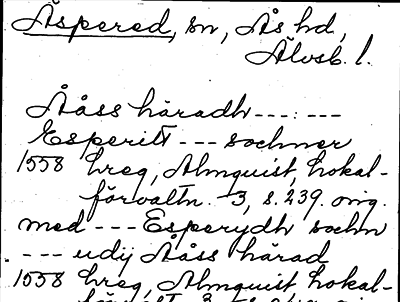 Äspered, sn, Ås hd,
Älvsb. l.
Ååss häradh ---:---
Esperitt --- sochner
1558 hreg, Almquist, Lokal-
förvaltn. 3, s. 239. orig.
med --- Esperydh sochn
--- udij Ååss härad
1558 hreg, Almquist, Lokal-